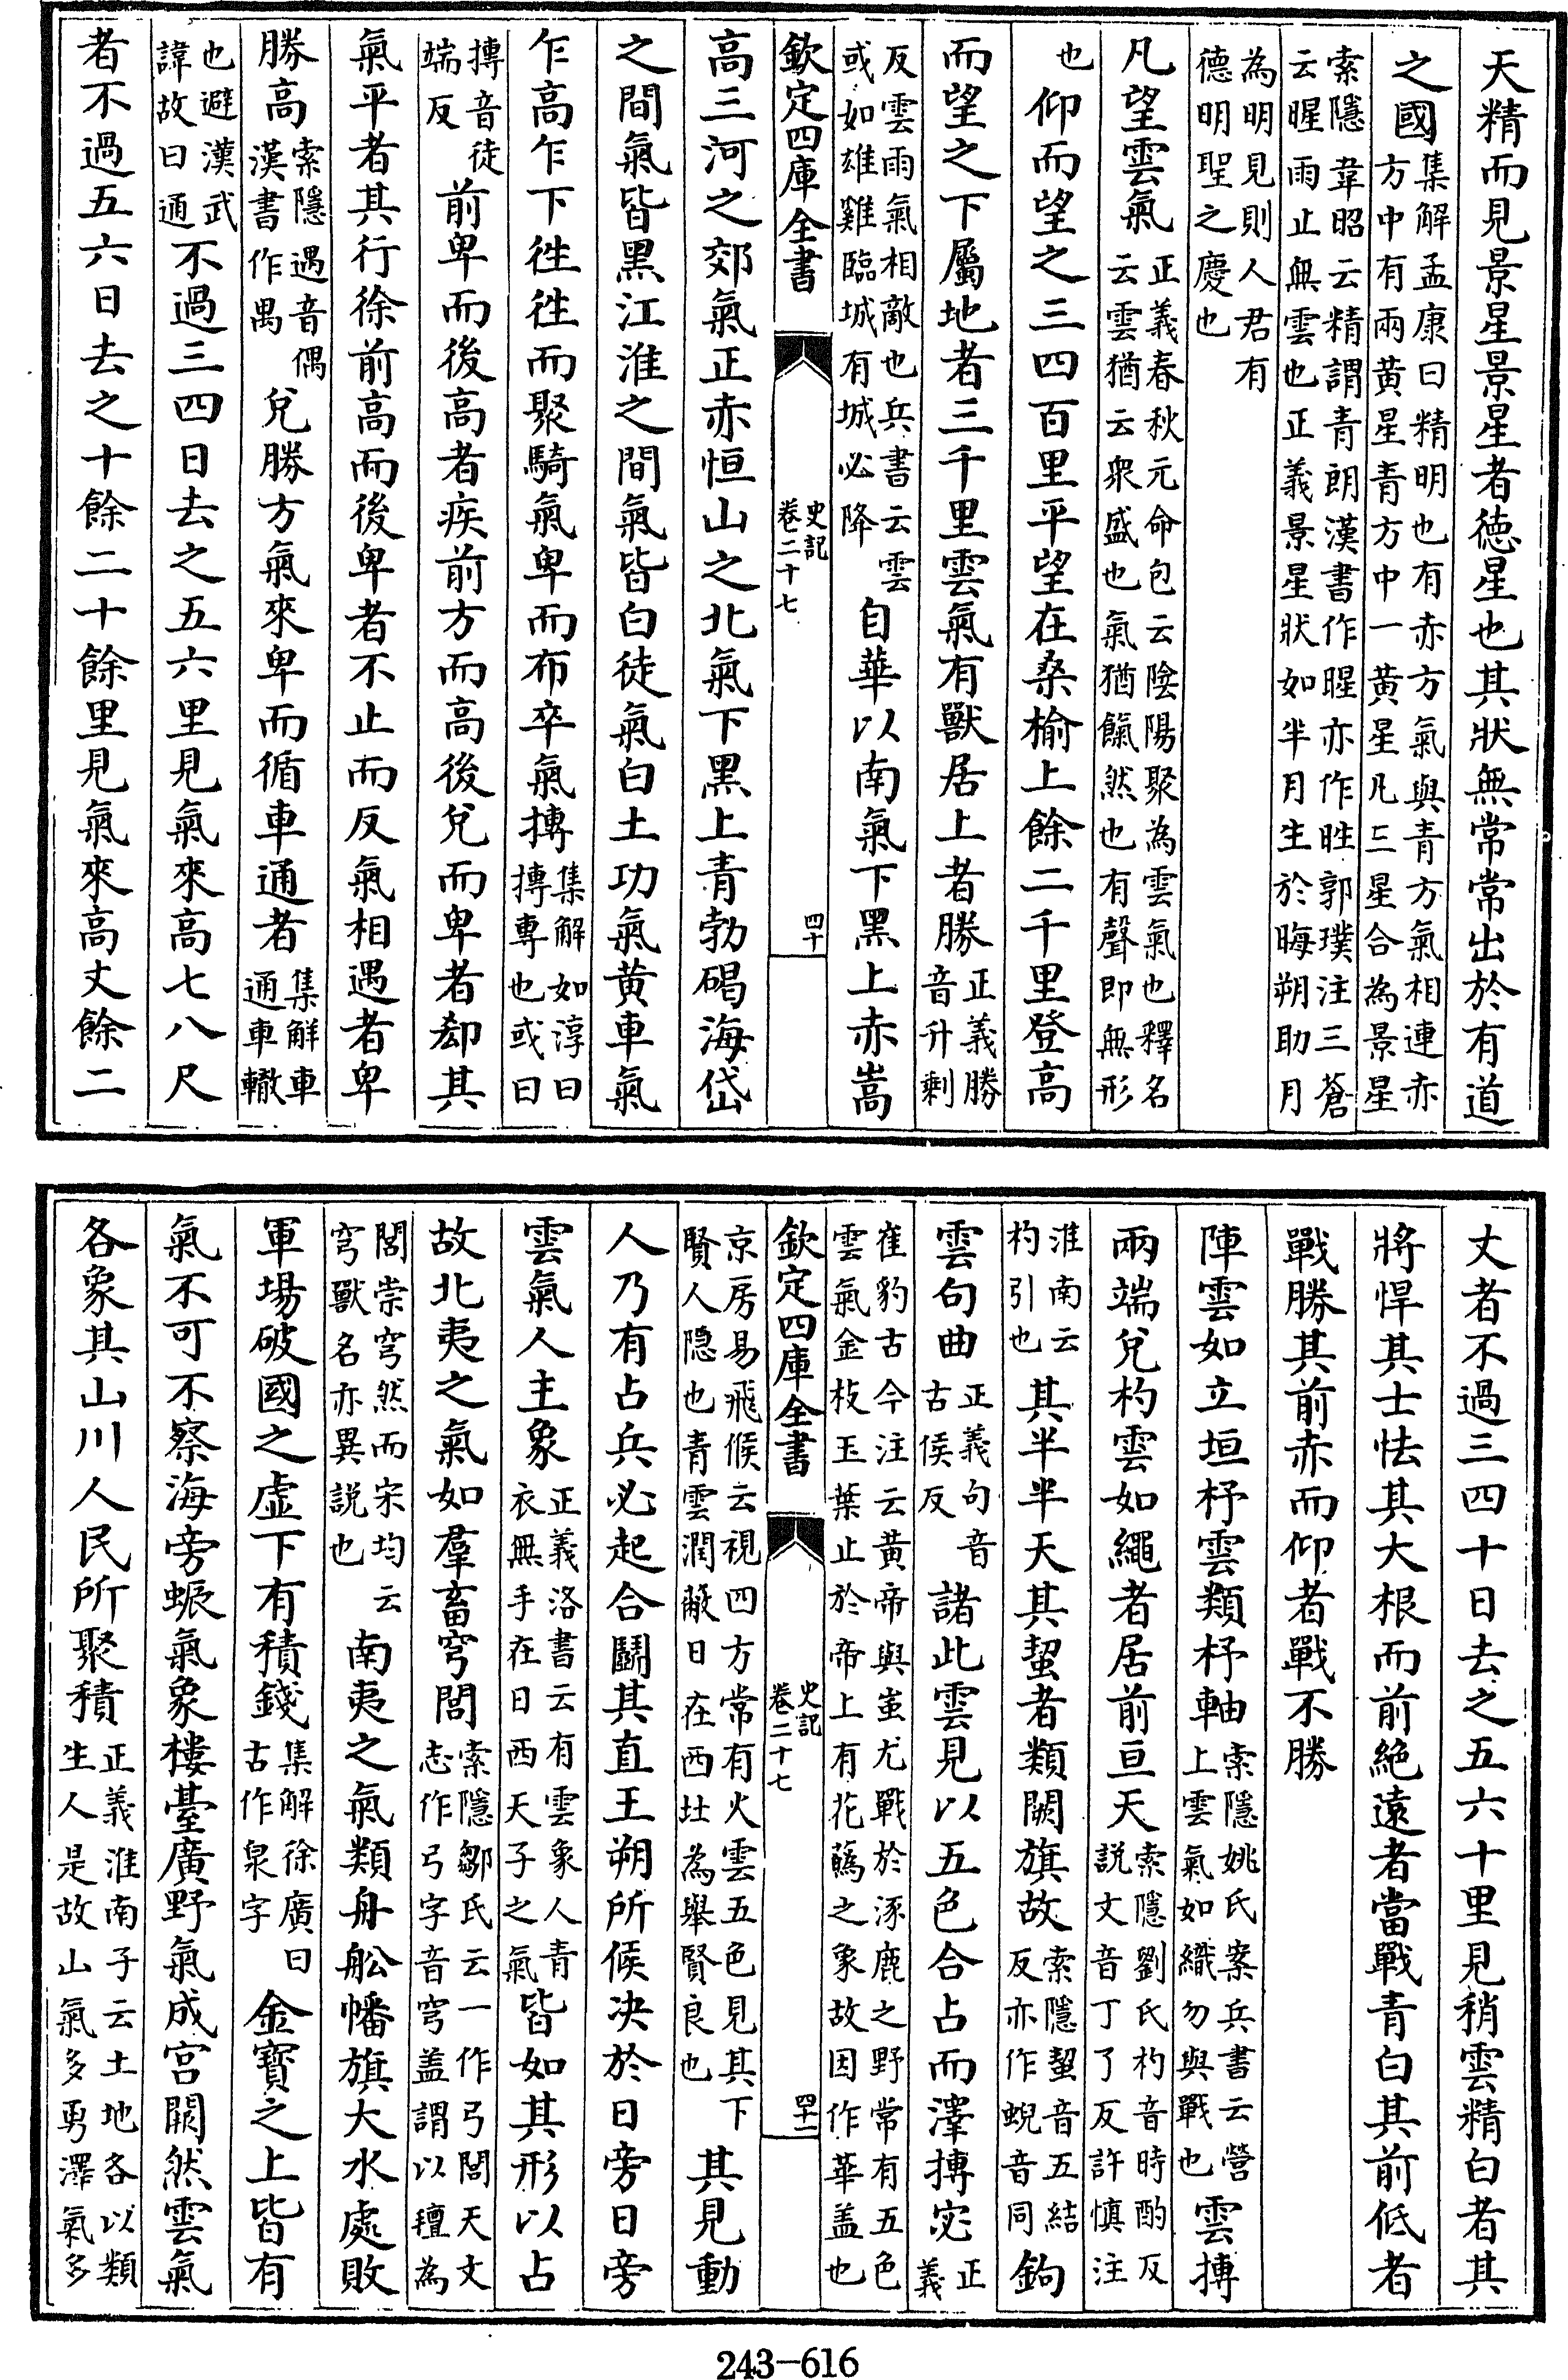 天精而見景星景星者徳星也其狀無常常出於有道
之國集解孟康曰精明也有赤方氣與青方氣相連赤方中有兩黄星青方中一黄星凡三星合為景星
索隱韋昭云精謂青朗漢書作暒亦作暒郭璞注三蒼云暒雨止無雲也正義景星狀如半月生於晦朔助月
為明見則人君有德明聖之慶也
凡望雲氣正義春秋元命包云陰陽聚為雲氣也釋名云雲猶云衆盛也氣猶餼然也有聲即無形
也仰而望之三四百里平望在桑榆上餘二千里登高
而望之下屬地者三千里雲氣有獸居上者勝正義勝音升剩
反雲雨氣相敵也兵書云雲或如雄雞臨城有城必降自華以南氣下黑上赤嵩
欽定四庫全書 史記卷二十七 四十
高三河之郊氣正赤恒山之北氣下黑上青勃碣海岱
之間氣皆黑江淮之間氣皆白徒氣白土功氣黄車氣
乍高乍下徃徃而聚騎氣卑而布卒氣摶集解如淳曰摶專也或曰
摶音徒端反前卑而後高者疾前方而高後兌而卑者却其
氣平者其行徐前高而後卑者不止而反氣相遇者卑
勝高索隱遇音偶漢書作禺兌勝方氣來卑而循車通者集解車通車轍
也避漢武諱故曰通不過三四日去之五六里見氣來高七八尺
者不過五六日去之十餘二十餘里見氣來高丈餘二
丈者不過三四十日去之五六十里見稍雲精白者其
將悍其士怯其大根而前絶逺者當戰青白其前低者
戰勝其前赤而仰者戰不勝
陣雲如立垣杼雲類杼軸索隱姚氏案兵書云營上雲氣如織勿與戰也雲摶
兩端兌杓雲如繩者居前亘天索隱劉氏杓音時酌反説文音丁了反許慎注
淮南云杓引也其半半天其蛪者類闕旗故索隱蛪音五結反亦作蜺音同鉤
雲句曲正義句音古侯反諸此雲見以五色合占而澤摶宻正義
崔豹古今注云黄帝與蚩尤戰於涿鹿之野常有五色雲氣金枝玉葉止於帝上有花蘤之象故因作華盖也
欽定四庫全書 史記卷二十七 四十一
京房易飛候云視四方常有火雲五色見其下賢人隠也青雲潤蔽日在西北為舉賢良也其見動
人乃有占兵必起合鬭其直王朔所候决於日旁日旁
雲氣人主象正義洛書云有雲象人青衣無手在日西天子之氣皆如其形以占
故北夷之氣如羣畜穹閭索隱鄒氏云一作弓閭天文志作弓字音穹盖謂以氊為
閭崇穹然而宋均云穹獸名亦異説也南夷之氣類舟舩幡旗大水處敗
軍場破國之虛下有積錢集解徐廣曰古作泉字金寳之上皆有
氣不可不察海旁蜄氣象樓臺廣野氣成宫闕然雲氣
各象其山川人民所聚積正義淮南子云土地各以類生人是故山氣多勇澤氣多
243-616